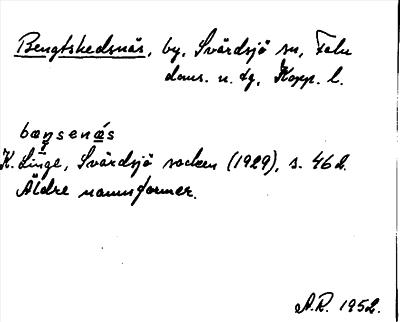 Bengtshedsnäs, by, Svärdsjö sn, Falu
doms. n. tg, Kopp. l.
bæŋsenä́s
K. Linge, Svärdsjö socken (1929), s. 462.
Äldre namnformer.
A.R. 1952.